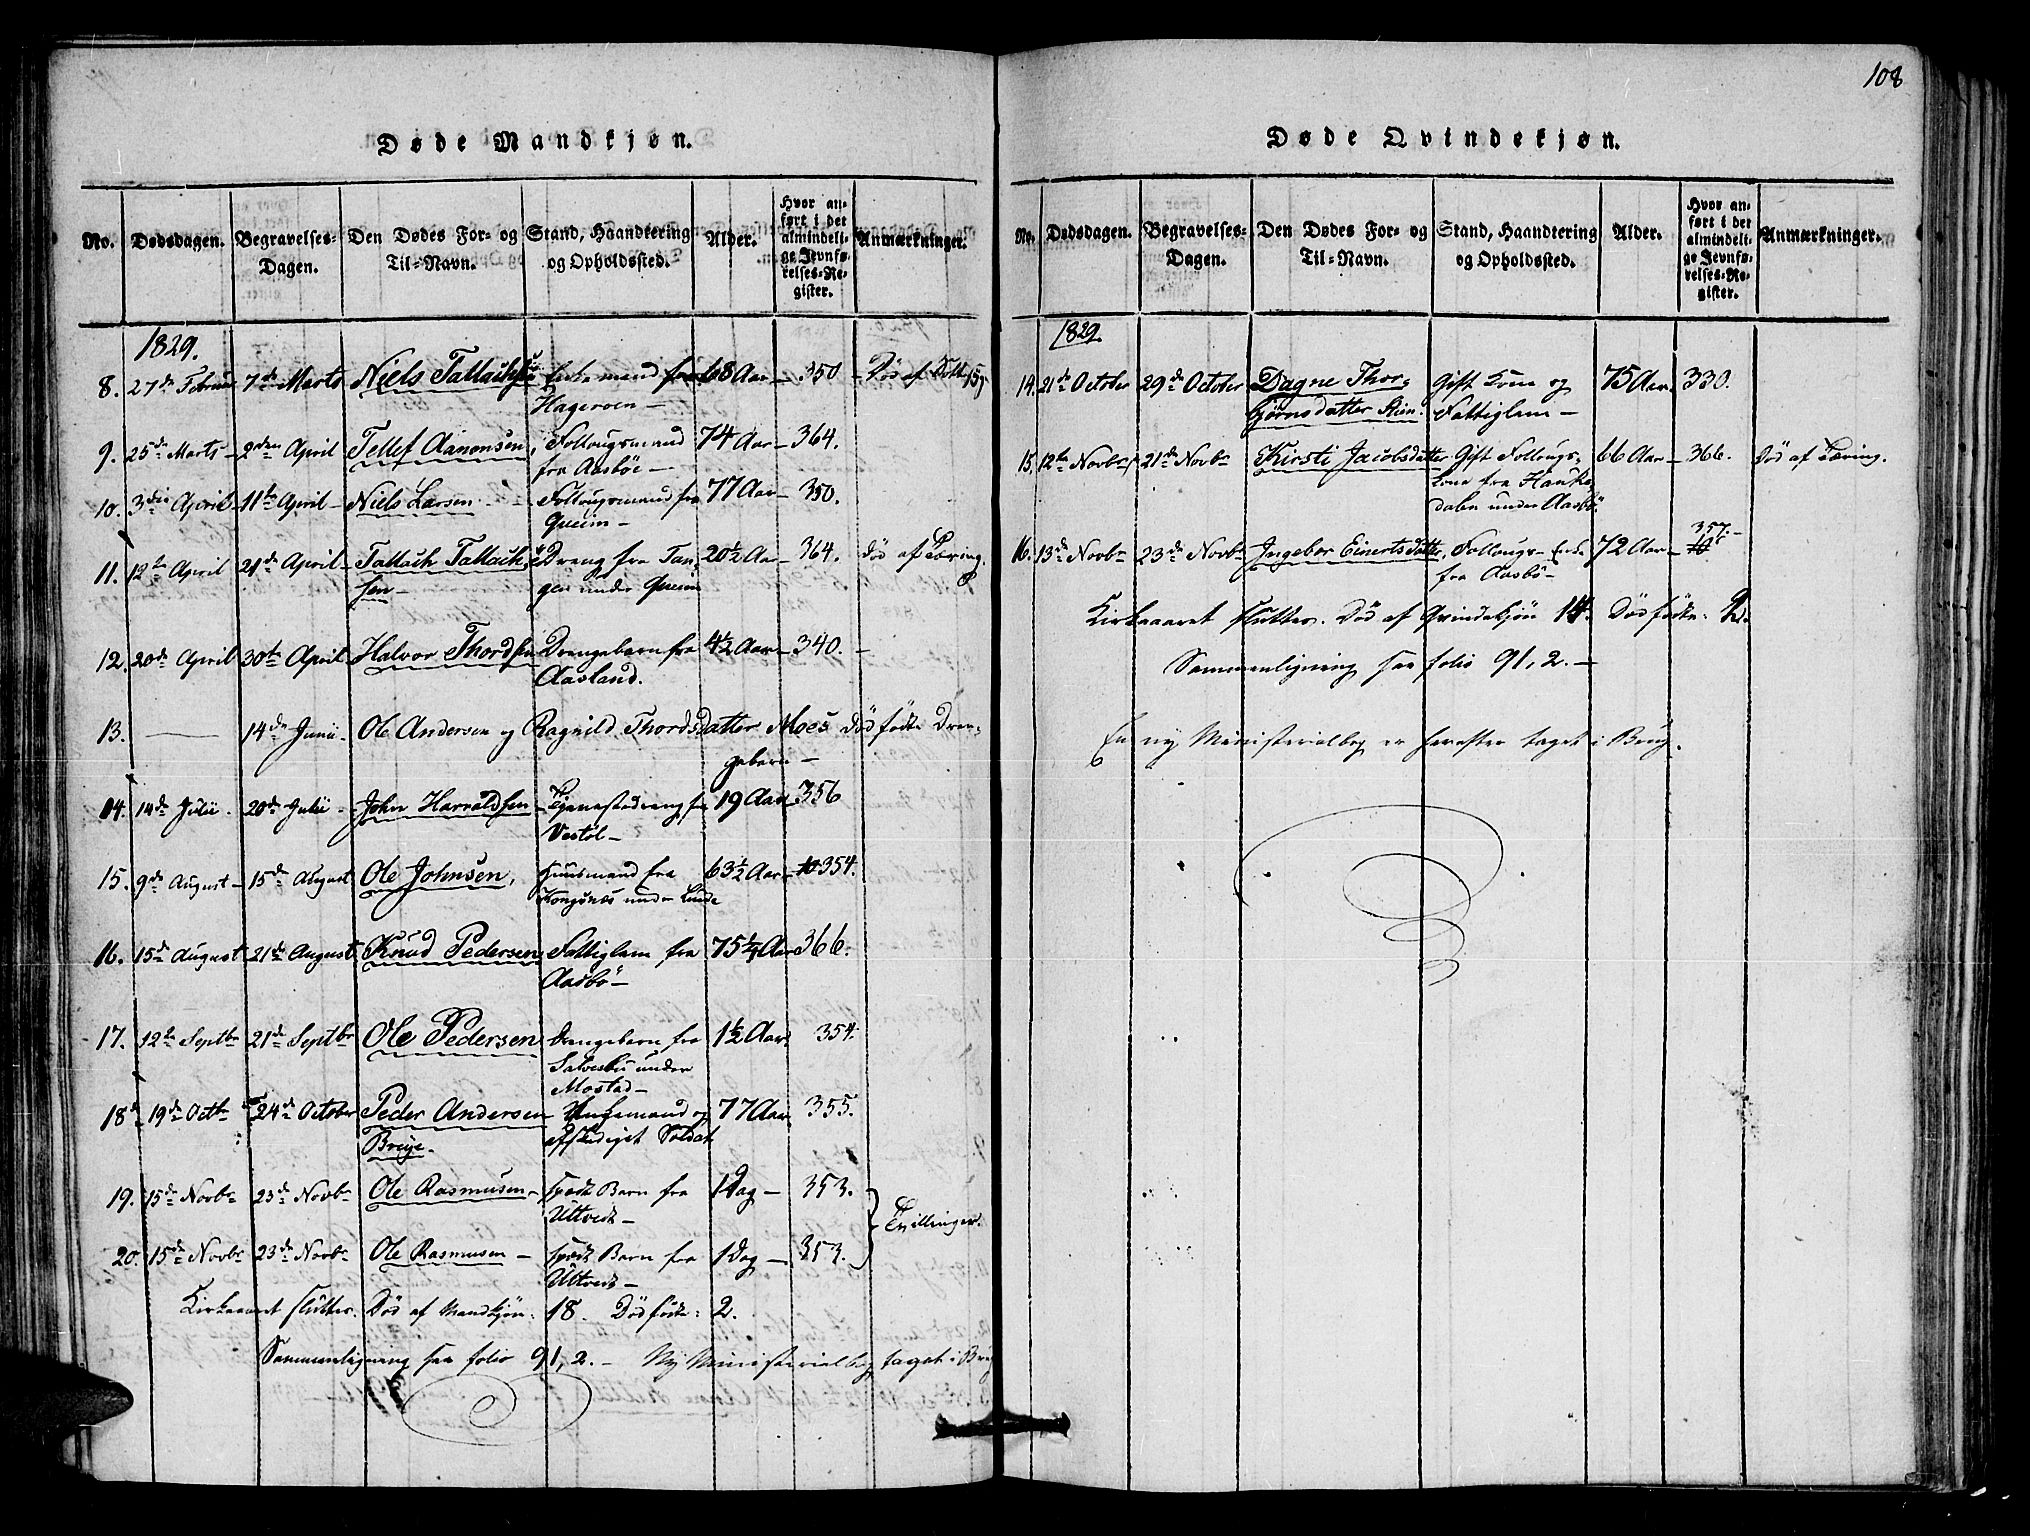 108
Døde Mandkjøn.
No. Dødsdagen. Begravelses-Dagen. Den Dødes For- og Til-Navn. Stand, Haandtering og Opholdssted. Alder. Hvor anført i det almindelige Jevnførelses-Register. Anmærkninger.
1829.
8. 27de Februar 7de Marts Niels Tallachsen Enkemand fra 68 Aar – 350 – Død af
Hageroen –
9. 25de Marts – 2den April Tellef Aanonsen, Follougsmand 74 Aar – 364.
fra Aasbøe –
10. 3die April – 11te April – Niels Larsen – Follougsmand fra 77 Aar – 350.
Queim –
11. 12te April 21de April – Tallach Tallach- Dreng fra Tan- 20½ Aar – 364. Død af Tæring.
sen – gen under Queim
12. 20de April 30te April Halvor Thordsen Drengebarn fra 4½ Aar – 340. –
Aasland.
13. — 14de Junii. Ole Andersen og Ragnild Thordsdatter Moes Dødfødte Dren-
gebarn –
14. 14de Julii. 20de Julii – John Harraldsen – Tjenestedreng fra 19 Aar 356
Vestøl –
15. 9de August – 15de August Ole Johnsen, Huusmand fra 63½ Aar – 354.
Kongsnæs under Lunde
16. 15de August 21de August Knud Pedersen Fattiglem fra 75¼ Aar 366.
Aasbø –
17. 12te Septbr 21de Septbr Ole Pedersen Drengebarn fra 1½ Aar 354.
Salvesbu under
Mostad –
18. 19de Octbr 24de October Peder Andersen Ungemand og 77 Aar 355.
Breije. afskediget Soldat
19. 15de Novbr 23de Novbr Ole Rasmusen – spædt Barn fra 1 Dag – 353.
Ultvedt – Tvillinger.
20. 15de Novbr 23de Novbr Ole Rasmusen – spædt Barn fra 1 Dag – 353.
Ultvedt –
Kirkeaaret slutter. Død af Mandkjøn: 18. Dødfødte: 2.
Sammenligning saa folio 91, 2. – Ny Ministerialbog taget i Brug
Døde Qvindekjøn.
No. Dødsdagen. Begravelses-Dagen. Den Dødes For- og Til-Navn. Stand, Haandtering og Opholdssted. Alder. Hvor anført i det almindelige Jevnførelses-Register. Anmærkninger.
1829.
14. 21de October 29de October Dagne Thor- Gift Kone og 75 Aar 330.
bjørnsdatter Fattiglem –
15. 12te Novbr 21de Novbr Kirsti Jacobsdatter Gift Follougs- 66 Aar – 366. Død af Tæring.
kone fra Hauke-
dalen under Aasbø
357. –
16. 13de Novbr 23de Novbr Ingebor Einertsdatter, Follougs- Enke 72 Aar –
fra Aasbø –
Kirkeaaret slutter. Død af Qvindekjøn 14. Dødfødte: 2.
Sammenligning saa folio 91, 2. –
En ny Ministerialbog er herefter taget i Brug.